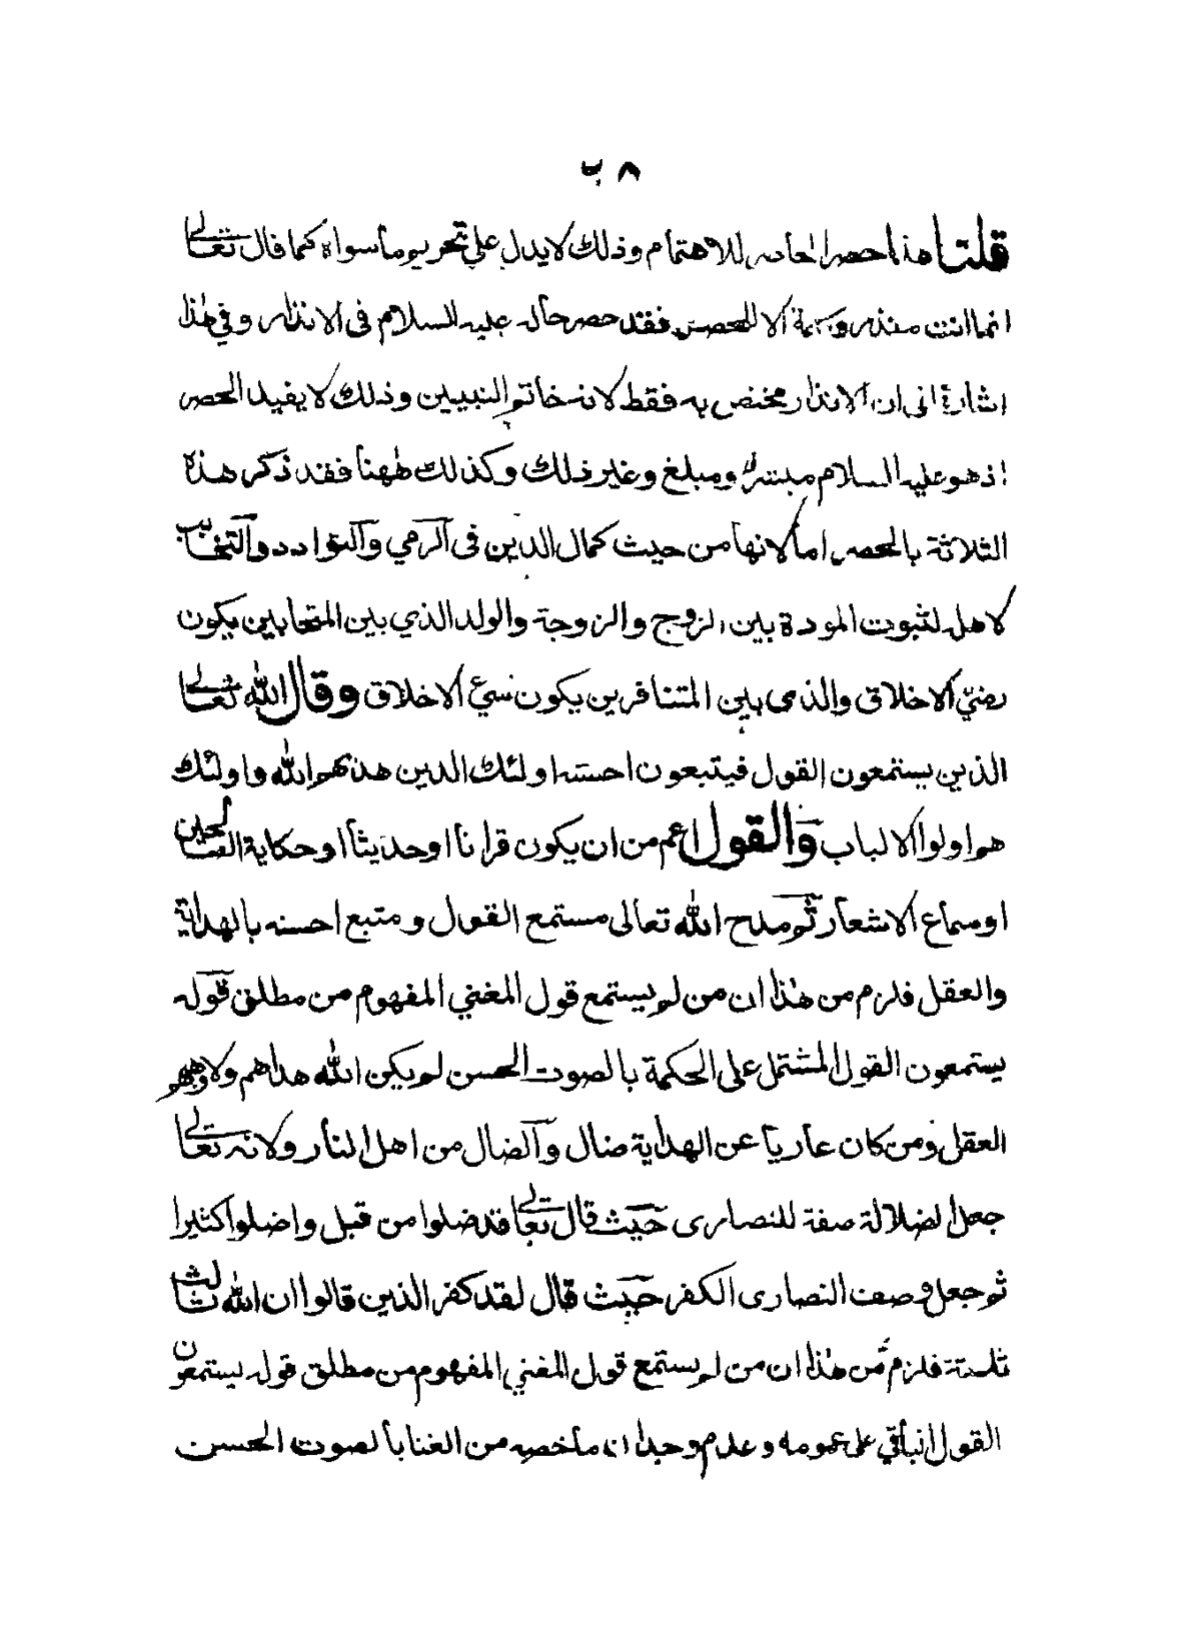 ٨ ب
قلنا هذا حصر للاهتمام وذلك لا يدل على تحريم ما سواه كما قال تعالى
انما انت منذر الا للحصر فقد حصر حاله عليه السلام فى الانذار وفي هذا
اشارة الى ان الانذار مختص به فقط لانه خاتم النبيين وذلك لا يفيد الحصر
اذ هو عليه السلام مبشر ومبلغ وغير ذلك وكذلك ههنا فقد ذكر هذه
الثلاثة بالحصر اما لانها من حيث كمال الدين فى الرمي والتوادد والتحابب
لاهله لثبوت المودة بين الزوج والزوجة والولد الذي بين المتحابين يكون
رضيّ الاخلاق والذى بين المتنافرين يكون سيئ الاخلاق وقال الله تعالى
الذين يستمعون القول فيتبعون احسنه اولئك الذين هديهم الله واولئك
هم اولوا الالباب والقول اعم من ان يكون قرانا او حديثا او حكاية الصالحين
او سماع الاشعار ثم مدح الله تعالى مستمع القول ومتبع احسنه بالهداية
والعقل فلزم من هذا ان من لم يستمع قول المغني المفهوم من مطلق قوله
يستمعون القول المشتمل على الحكمة بالصوت الحسن لم يكن الله هداهم ولا وهبهم
العقل ومن كان عاريا عن الهداية ضال والضال من اهل النار ولانه تعالى
جعل الضلالة صفة للنصارى حيث قال تعالى قد ضلوا من قبل واضلوا كثيرا
ثم جعل وصف النصارى الكفر حيث قال لقد كفر الذين قالوا ان الله ثالث
ثلثة فلزم من هذا ان من لم يستمع قول المغني المفهوم من مطلق قوله يستمعون
القول الباقي على عمومه وعدم وجدان ما خصه من الغنا بالصوت الحسن